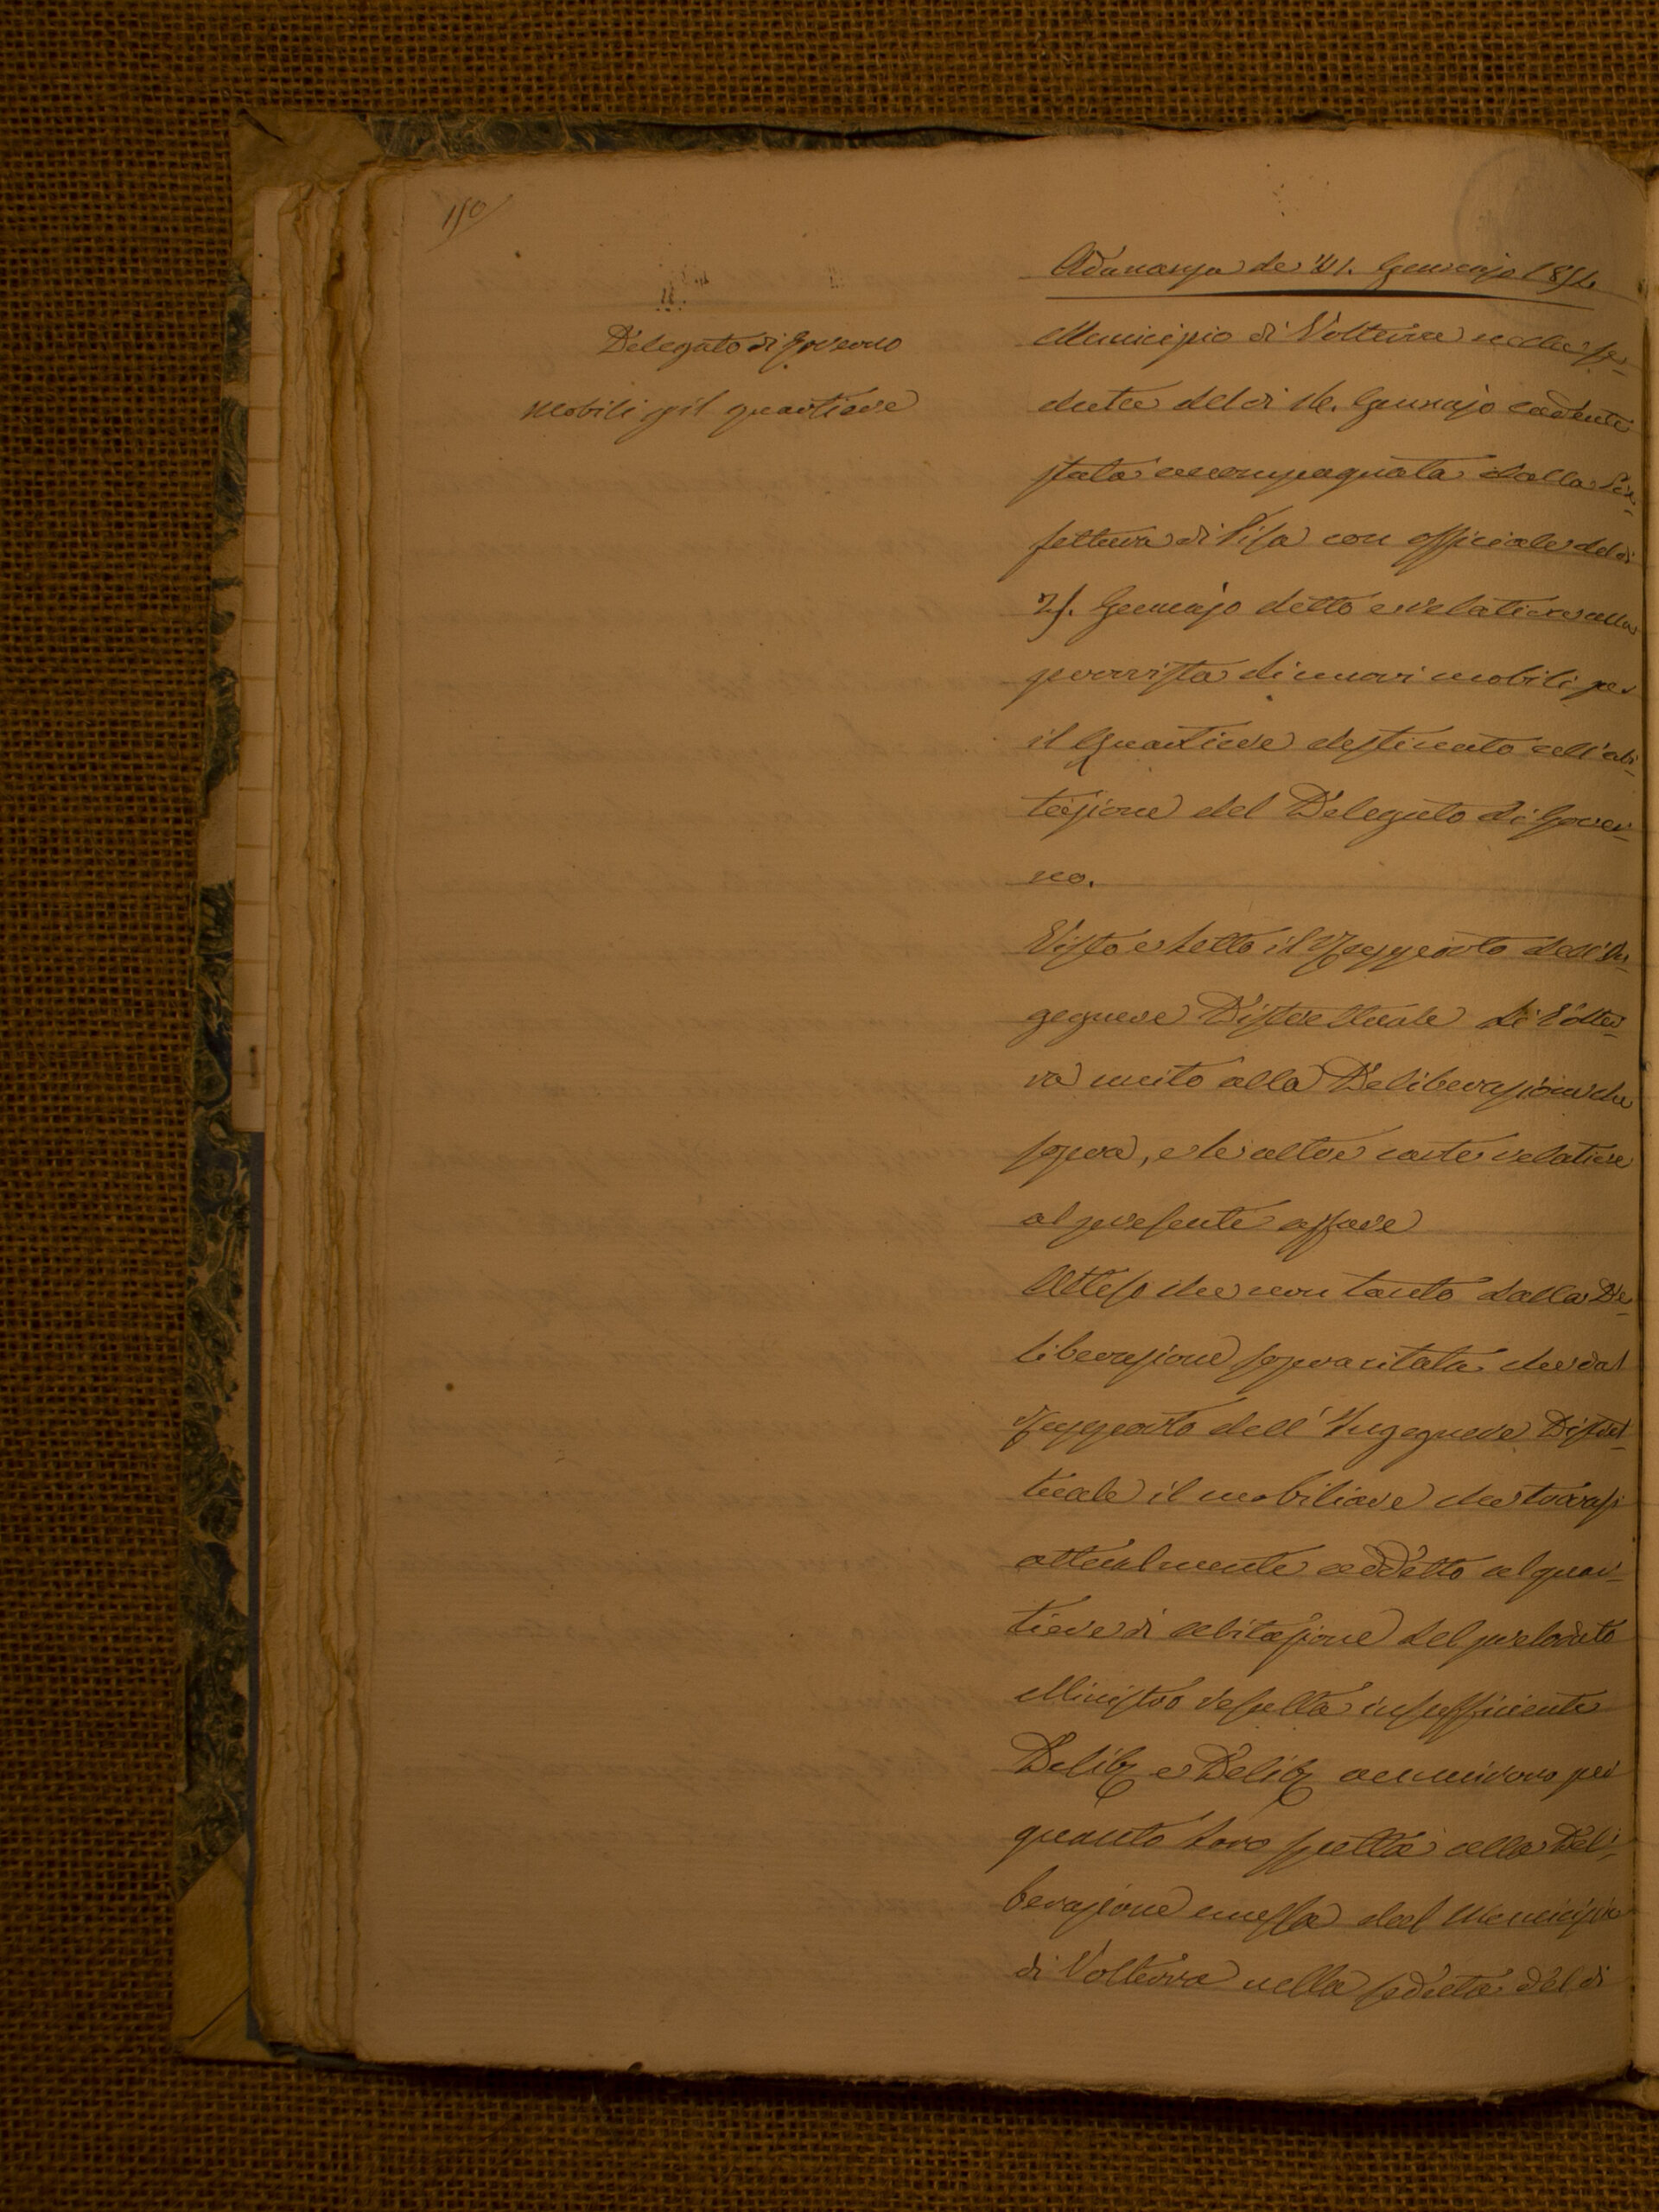 150
Adunanza de' 31. Gennajo 1854
Delegato di Governo
Mobili p il quartiere
Municipio di Volterra nella se-
duta del di 16. Gennajo cadente
stata accompagnata dalla Pre-
fettura di Pisa con officiale del di
25. Gennajo detto e relativa alla
provvista di nuovi mobili per
il Quartiere destinato all'abi-
tazione del Delegato di Gover-
no.
Visto e Letto il Rapporto dell'In-
gegnere Distrettuale di Volter-
ra unito alla Deliberazione che
sopra, e le altre carte relative
al presente affare
Atteso che non tanto dalla De-
liberazione sopracitata che dal
Rapporto dell'Ingegnere Distret-
tuale il mobiliare che trovasi
attualmente addetto al quar-
tiere di abitazione del prelodato
Ministro resulta insufficiente
Delib e Delib annuirono per
quanto Loro spetta alla Deli-
berazione emessa dal Municipio
di Volterra nella seduta del di